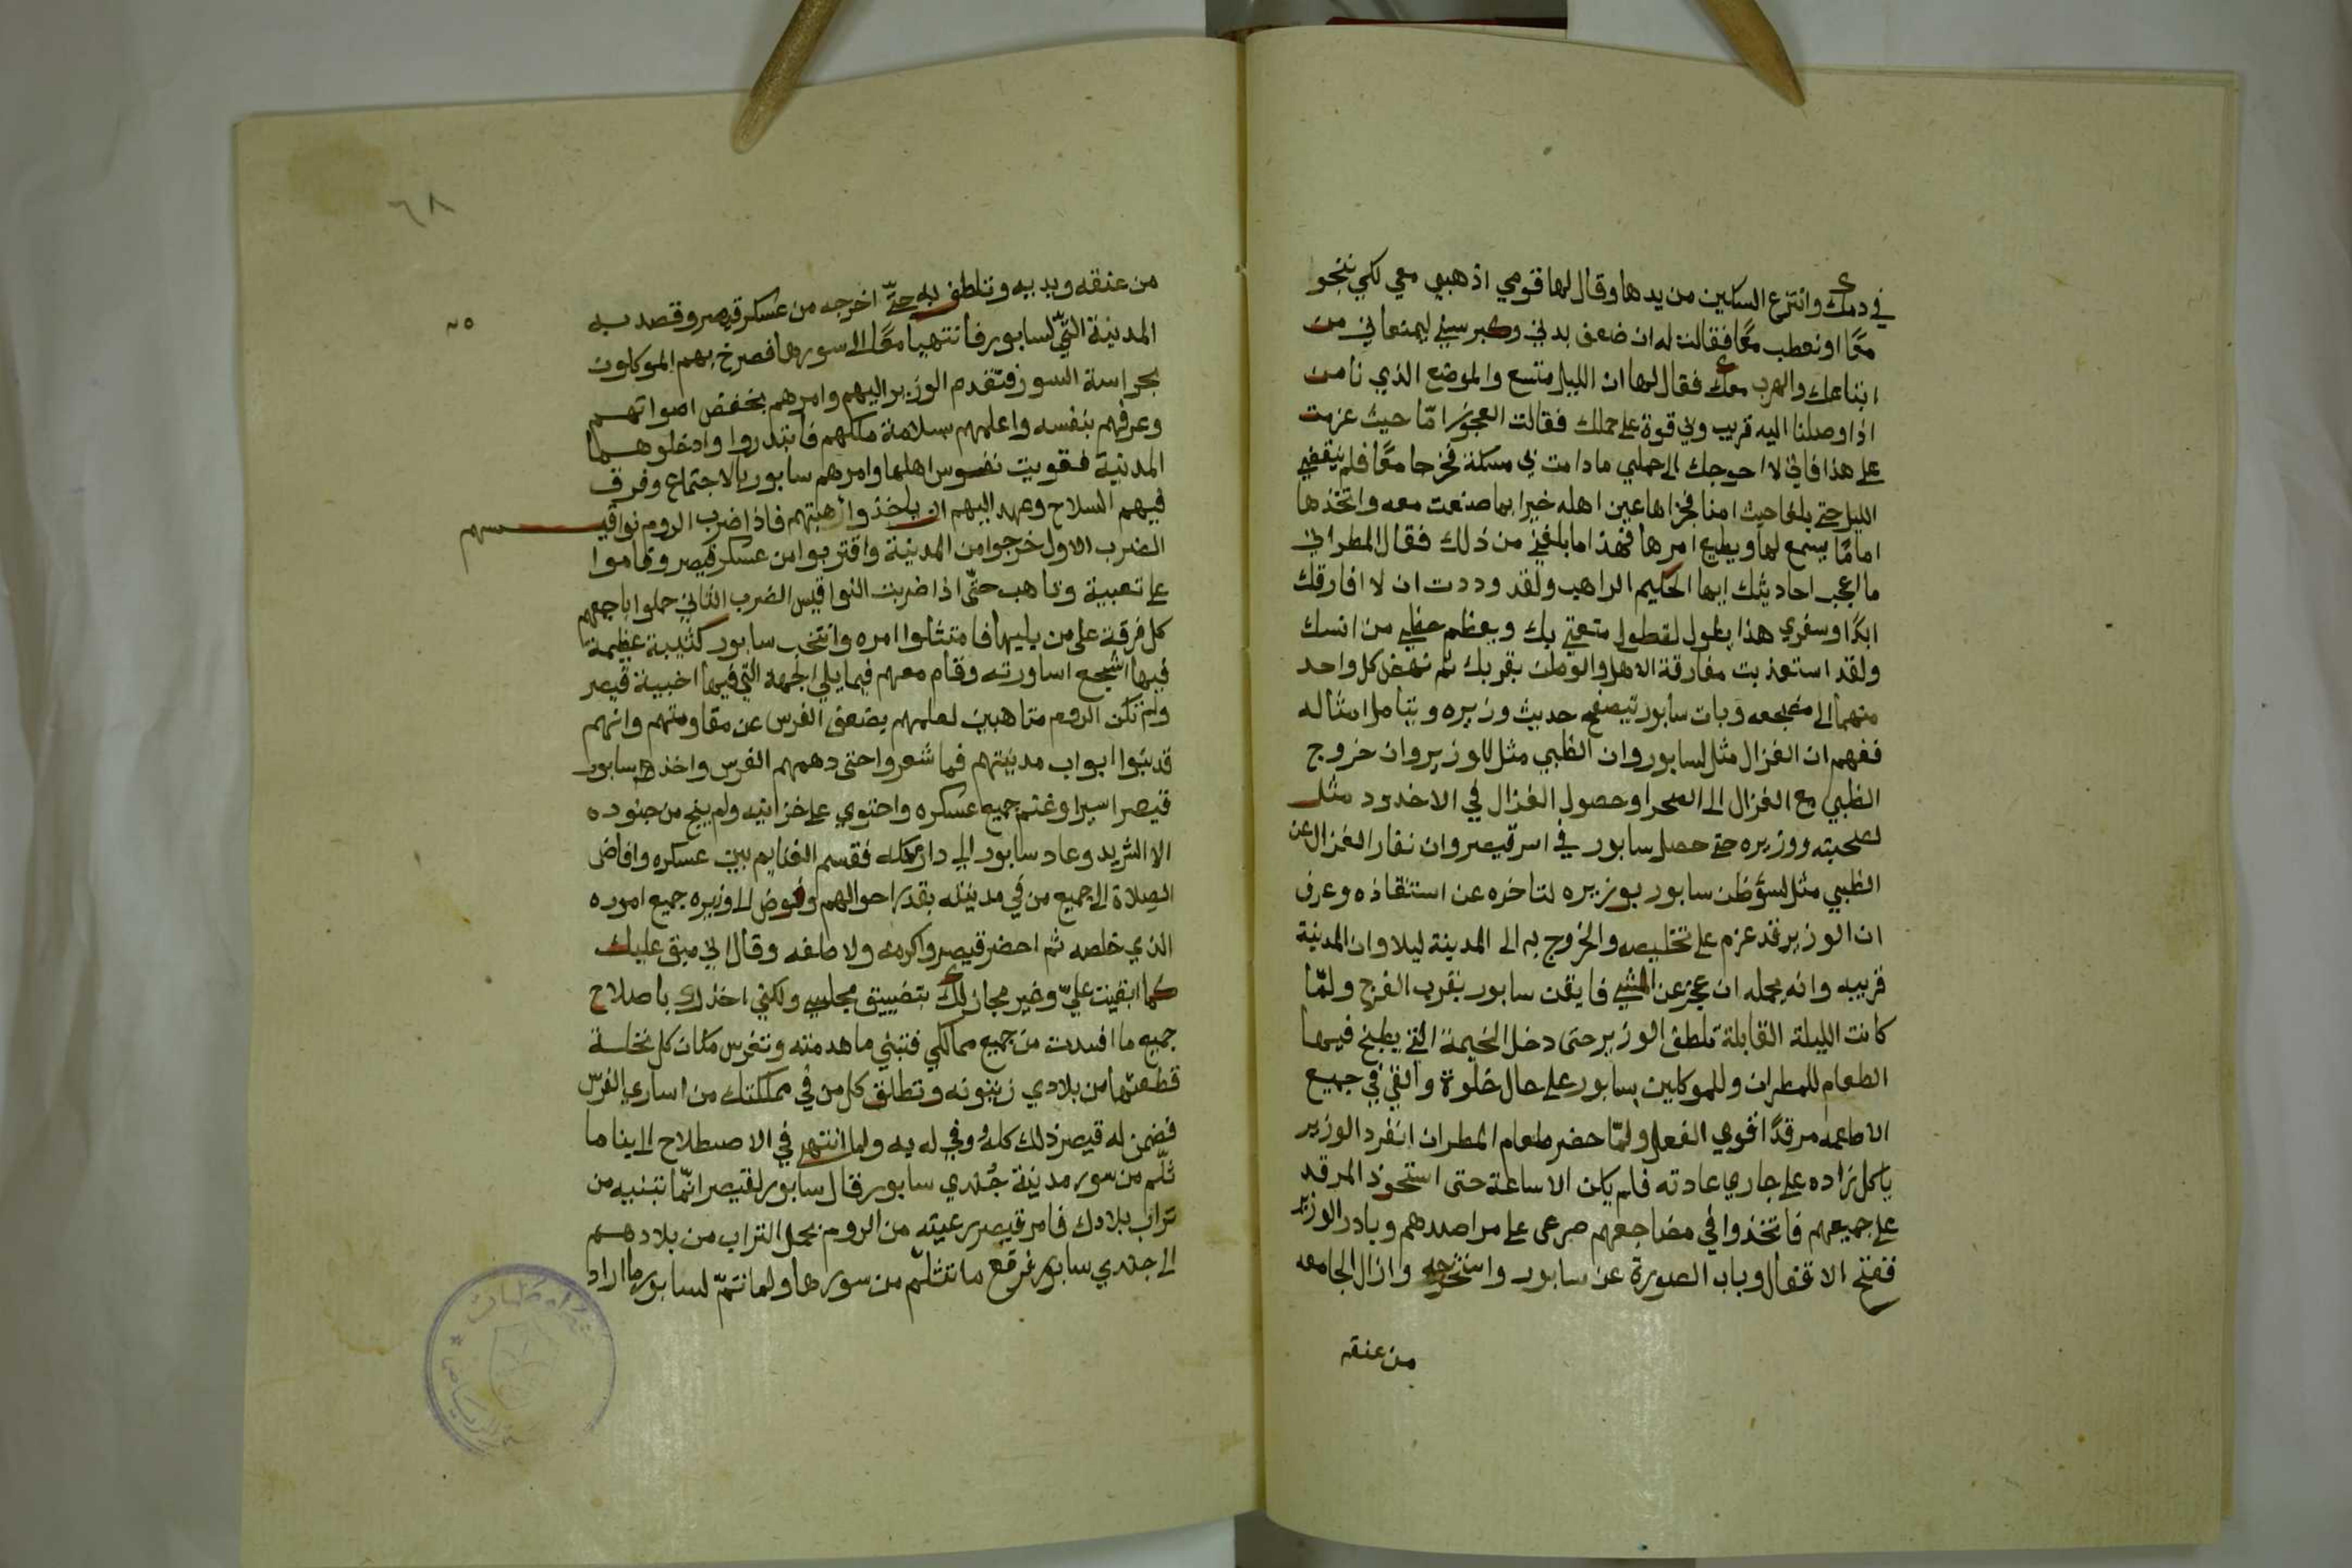 في دمك وانتزع السكين من يدها وقال لها قومي اذهبي معي لكي ننجوا
معًا او نعطب معًا فقالت له ان ضعف بدني وكبر سني ليمنعاني من
اتباعك والهرب معك فقال لها ان الليل متسع والموضع الذي نامن
اذا وصلنا اليه قريب ولي قوة على حملك فقالت العجوز امّا حيث عزمت
على هذا فاني لا احوجك الى حملي ما دامت بي مسكة فخرجا معًا فلم ينقضي
الليل حتى بلغا حيث امنا فجزاها عين اهله خيرا بما صنعت معه واتخذها
امامًا يسمع لها ويطيع امرها فهذا ما بلغني من ذلك فقال المطران
ما اعجب احاديثك ايها الحكيم الراهب ولقد وددت ان لا افارقك
ابدًا وسفري هذا يطول لتطول متعتي بك ويعظم حظي من انسك
ولقد استعذبت مفارقة الاهل والوطن بقربك ثم نهض كل واحد
منهما الى مضجعه وبات سابور يتصفح حديث وزيره ويتامل امثاله
ففهم ان الغزال مثل لسابور وان الظبي مثل للوزير وان خروج
الظبي مع الغزال الى الصحرا وحصول الغزال في الاخدود مثل
لصحبته ووزيره حتى حصل سابور في اسر قيصر وان نفار الغزال عن
الظبي مثل لسؤ ظن سابور بوزيره لتاخره عن استنقاذه وعرف
ان الوزير قد عزم على تخليصه والخروج به الى المدينة ليلا وان المدينة
قريبه وانه يحمله ان عجز عن المشي فايقن سابور بقرب الفرج ولمّا
كانت الليلة القابلة تلطف الوزير حتى دخل الخيمة التي يطبخ فيها
الطعام للمطران وللموكلين بسابور على حال خلوة والقي في جميع
الاطعمه مرقدًا قوي الفعل ولمّا حضر طعام المطران انفرد الوزير
ياكل زاده على جاري عادته فلم يكن الا ساعة حتى استحوذ المرقد
على جميعهم فاتخذوا في مضاجعهم صرعى على مراصدهم وبادر الوزير
ففتح الاقفال وباب الصورة عن سابور واستخرجه وازال الجامعه
من عنقه
٦٨
من عنقه ويديه وتلطف به حتّى اخرجه من عسكر قيصر وقصد به
المدينة التّي لسابور فانتهيا معًا الى سورها فصرخ بهم الموكلون
بحراسة السور فتقدم الوزير اليهم وامرهم بخفض اصواتهم
وعرفهم بنفسه واعلمهم بسلامة ملكهم فابتدروا وادخلوهما
المدينة فقويت نفوس اهلها وامرهم سابور بالاجتماع وفرق
فيهم السلاح وعهد اليهم ان ياخذوا أهبتهم فاذا ضرب الروم نواقيسهم
الضرب الاول خرجوا من المدينة واقتربوا من عسكر قيصر وقاموا
على تعبية وتاهب حتّى اذا ضربت النواقيس الضرب الثاني حملوا باجمعهم
كل فرقة على من يليها فامتثلوا امره وانتخب سابور كتيبة عظيمة
فيها اشجع اساورته وقام معهم فيما يلي الجهة التي فيها اخبية قيصر
ولم تكن الروم متاهبين لعلمهم بضعف الفرس عن مقاومتهم وانهم
قد بنوا ابواب مدينتهم فما شعروا حتى دهمهم الفرس واخذ سابور
قيصر اسيرا وغنم جميع عسكره واحتوي على خزاينه ولم ينج من جنوده
الا الشريد وعاد سابور الى دار ملكه فقسم الغنايم بين عسكره وافاض
الصلاة الى جميع من في مدينته بقدر احوالهم وفوض الى وزيره جميع اموره
الذي خلصه ثم احضر قيصر واكرمه ولاطفه وقال اني مبق عليك
كما ابقيت عليّ وغير مجاز لك بتضييق مجلسي ولكني اخذك باصلاح
جميع ما افسدت من جميع ممالكي فتبني ما هدمته وتغرس مكان كل نخلة
قطعتها من بلادي زيتونه وتطلق كل من في مملكتك من اساري الفرس
فضمن له قيصر ذلك كله ووفي له به ولما انتهى في الاصطلاح الى بنا ما
ثلّم من سور مدينة جُندي سابور قال سابور لقيصر انّما تبنيه من
تراب بلادك فامر قيصر رعيته من الروم بحمل التراب من بلادهم
الى جندي سابور فرقع ما تثلّم من سورها ولما تمّ لسابور ما اراد